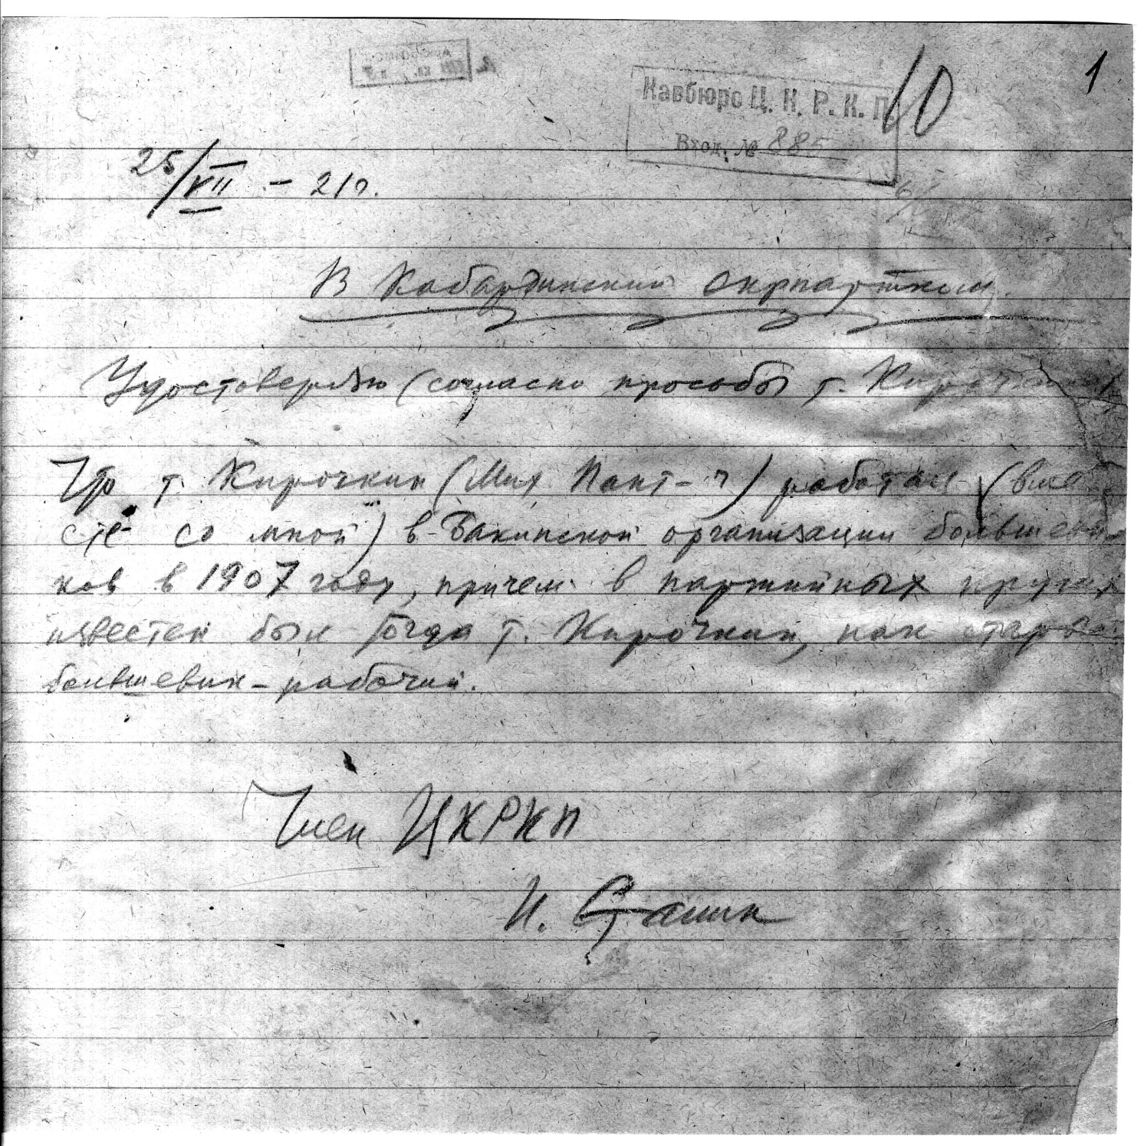 1
10
Кавбюро Ц. К. Р. К. П.
Вход. № 885
25/VII – 21 г.
В Кабардинский окрпартком.
Удостоверяю (согласно просьбы т.
Что т. Кирочкин (Мих Пант-ч) работал (вме-
сте со мной) в Бакинской организации большеви-
ков в 1907 году, причем в партийных кругах
известен был тогда т. Кирочкин, как старый
большевик-рабочий.
Член ЦКРКП
И. Сталин